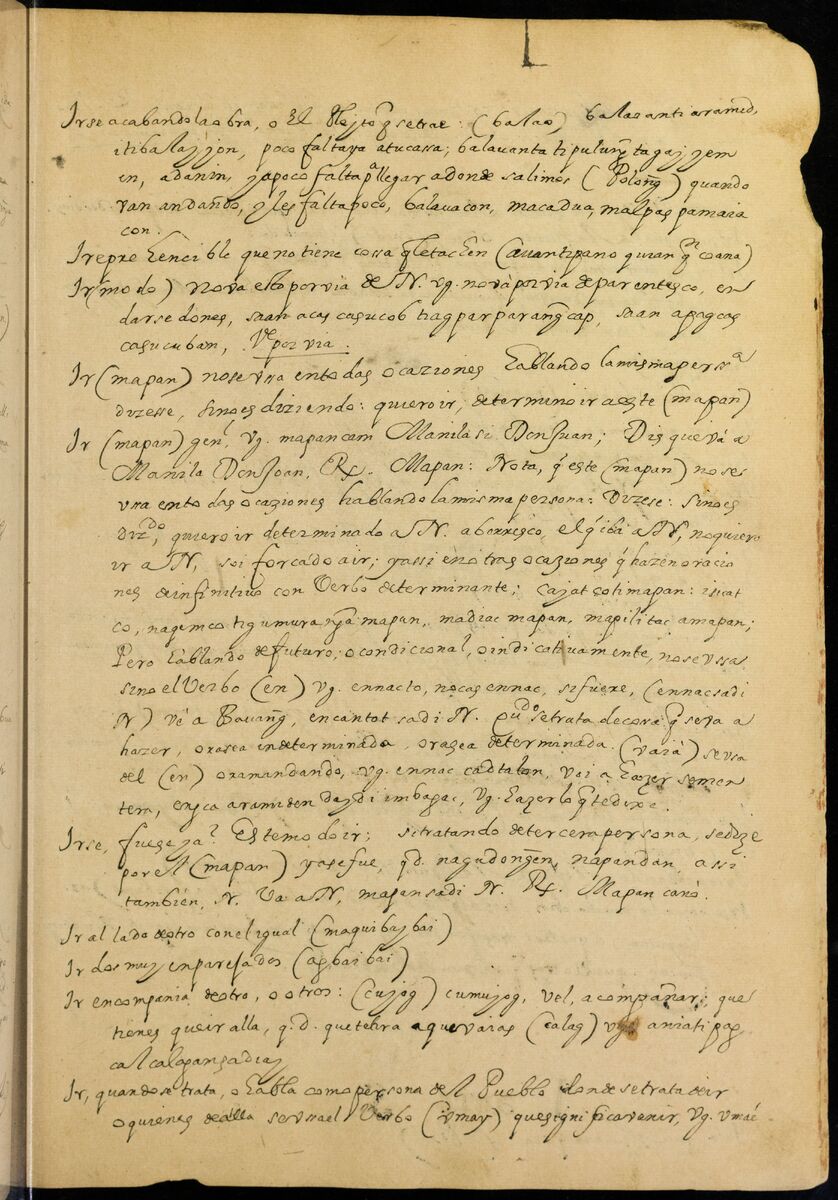 Irse acabando la obra, o El Viejto q̃ se trae: (balao) balaoanti aramid,
itibalayjon, poco falta ya a tu cassa; balauanta tipulun,
en, adanin, ya poco falta pᵃ llegar a donde salimos (Polong̃) quando
van andando, y les falta poco, balauacon, macadua, malpas pamaia
con.
Irreprehencible que no tiene cossa q̃ le tachen (auantipano
Ir (modo) Nova esto por via de N. vg. nova por via de parentesco, en
darse dones, saan acas casucob saan apagcas
casucuban, Vᵉ por via.
Ir (mapan) no se vsa en todas ocaziones hablando la misma perssᵃ
dizesse, sino es diziendo: quiero ir, determino ir a este (mapan)
Ir (mapan) genˡ, vg. mapancam Manila si Don Juan; Dis que vá a
Manila Don Joan, Rx. Mapan: Nota, q̃ este (mapan) no se
vsa en todas ocaziones hablando la misma persona: Dizese: sino es
dizᵈᵒ, quiero ir determinado a N. aborresco, el q̃ iba a N, no quiero
ir a N, soi forcado a ir; y assi en otras ocaziones q̃ hazen oracio
nes de infinitivo con Verbo determinante; cajat cotimapan: isuat
co, nagemco tigumuran mapan, madiac mapan, mapilitac amapan;
Pero hablando de futuro, o condicional, o indicativamente, no se vssa
sino el Verbo (en) vg. ennacto, nocas ennac, si fuere, (ennac sadi
N) vé a Bauang̃, encantot sadi N. quᵈᵒ se trata de cosa q̃ se va a
hazer, ora sea indeterminada, ora sea determinada. (vaia) se vsa
del (en) ora mandando, vg. ennac cadtalon, voi a hazer semen
tera, enyca aramiden daydi imbagac, vg. hazer lo q̃ te dixe.
Irse, fuese ja? Es temo do ir; si tratando de tercera persona, se dize
por el (mapan) ya se fue, q.d. napandan, assi
también, N. Va a N, mapan sadi N. Rx. Mapan cano.
Ir al lado de otro con el igual (maquibaybai)
Ir dos muy emparejados (agbaibai)
Ir en compania de otro, o otros: (cujog) cumujog, vel, acompañar; que
tienes que ir alla, q.d. que tehra a que vaias (calag) vg. aniati pag
calcalagansadiay
Ir, quando se trata, o habla como persona del Pueblo donde se trata de ir
o quienes de alla se vsa el Verbo (vmay) que significa venir, vg. vmaé